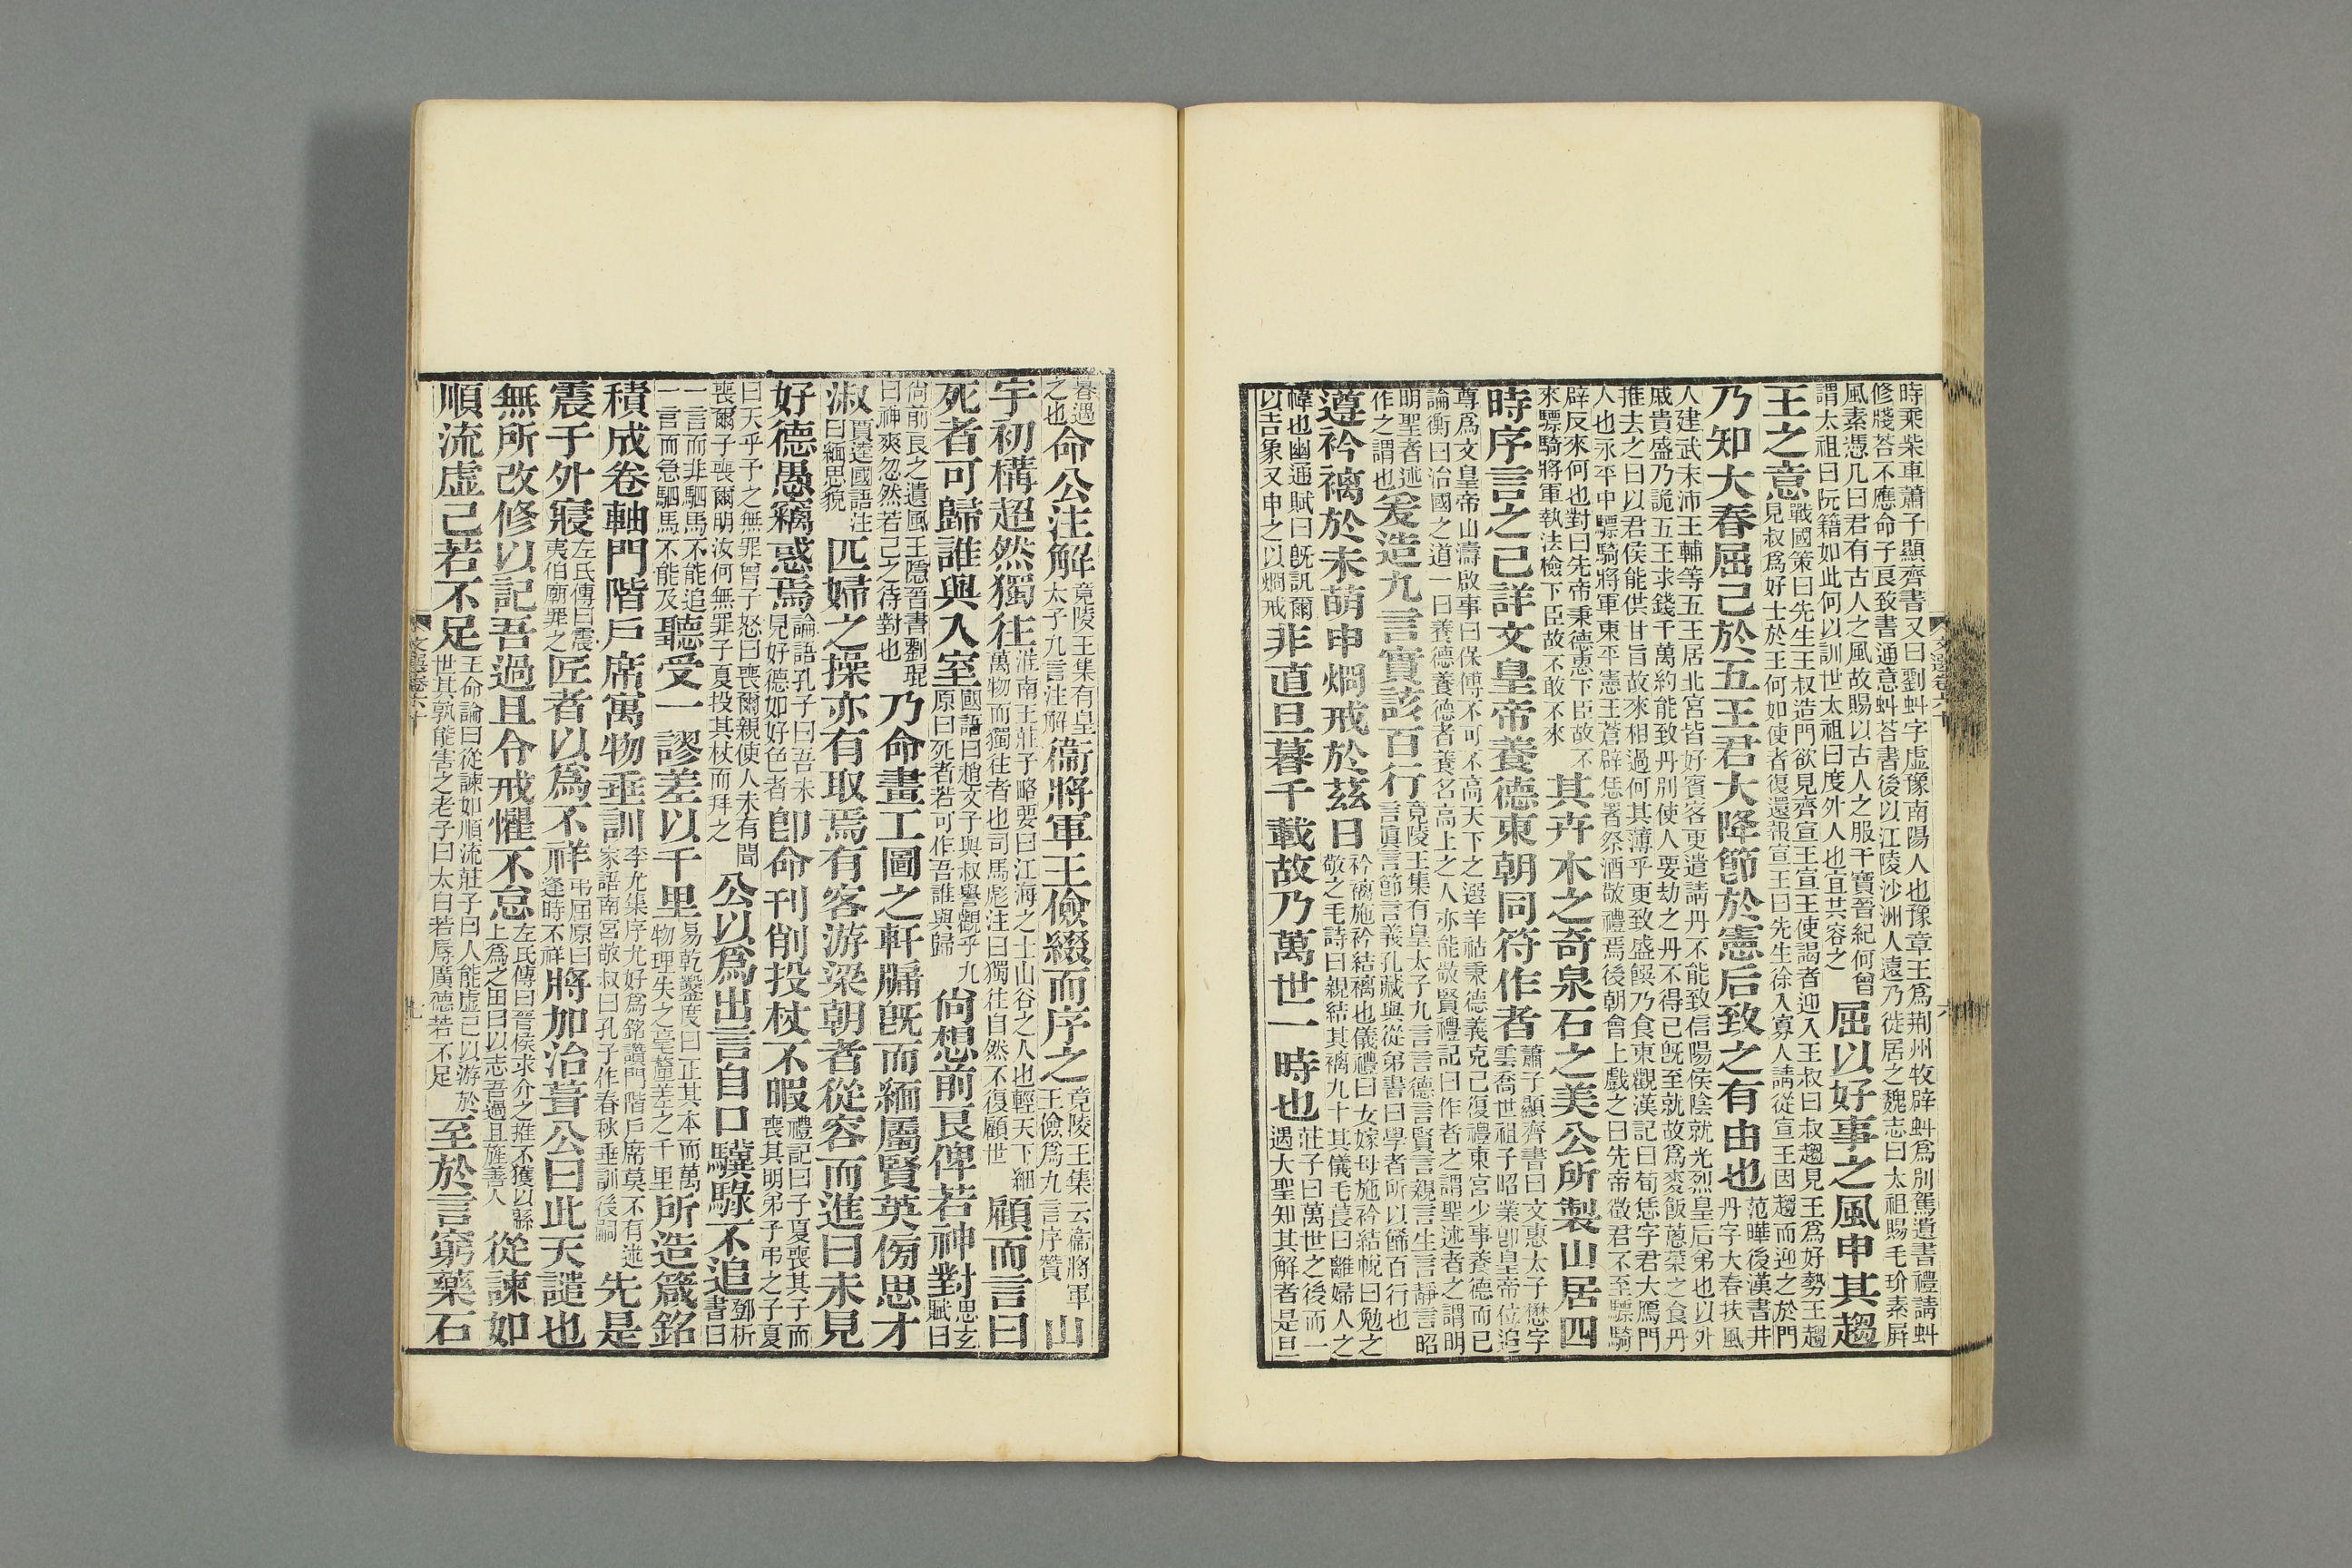 時乘柴車蕭子顯齊書又曰劉虯字虛豫南陽人也豫章王爲荆州牧辟虯爲別駕遺書禮請虯
修牋荅不應命子良致書通意虯荅書後以江陵沙洲人遠乃徙居之魏志曰太祖賜毛玠素屛
風素憑几曰君有古人之風故賜以古人之服干寶晉紀何曾
謂太祖曰阮籍如此何以訓世太祖曰度外人也宜共容之
屈以好事之風申其趨
王之意
戰國策曰先生王叔造門欲見齊宣王宣王使謁者迎入王叔曰叔趨見王爲好勢王趨
見叔爲好士於王何如使者復還報宣王曰先生徐入寡人請從宣王因趨而迎之於門
乃知大春屈己於五王君大降節於憲后致之有由也
范曄後漢書井
丹字大春扶風
人建武末沛王輔等五王居北宮皆好賓客更遣請丹不能致信陽侯陰就光烈皇后弟也以外
戚貴盛乃詭五王求錢千萬約能致丹別使人要劫之丹不得已旣至就故爲麥飯蔥菜之食丹
推去之曰以君侯能供甘旨故來相過何其薄乎更致盛饌乃食東觀漢記曰荀恁字君大鴈門
人也永平中驃騎將軍東平憲王蒼辟恁署祭酒敬禮焉後朝會上戲之曰先帝徵君不至驃騎
辟反來何也對曰先帝秉德惠下臣故不
來驃騎將軍執法檢下臣故不敢不來
其卉木之奇泉石之美公所製山居四
時序言之已詳文皇帝養德東朝同符作者
蕭子顯齊書曰文惠太子懋字
雲喬世祖子昭業卽皇帝位追
尊爲文皇帝山濤啟事曰保傅不可不高天下之選羊祜秉德義克己復禮東宮少事養德而已
論衡曰治國之道一曰養德養德者養名高上之人亦能敬賢禮記曰作者之謂聖述者之謂明
明聖者述
作之謂也
爰造九言實該百行
竟陵王集有皇太子九言言德言賢言親言生言靜言昭
言眞言節言義孔臧與從弟書曰學者所以飾百行也
遵衿褵於未萌申烱戒於茲日
衿褵施衿結褵也儀禮曰女嫁母施衿結帨曰勉之
敬之毛詩曰親結其褵九十其儀毛萇曰離婦人之
幃也幽通賦曰旣訊爾
以吉象又申之以烱戒
非直旦暮千載故乃萬世一時也
莊子曰萬世之後而一
遇大聖知其解者是旦
暮遇
之也
命公注解
竟陵王集有皇
太子九言注解
衞將軍王儉綴而序之
竟陵王集云衞將軍
王儉爲九言序贊
山
宇初構超然獨往
淮南王莊子略要曰江海之士山谷之人也輕天下細
萬物而獨往者也司馬彪注曰獨往自然不復顧世
顧而言曰
死者可歸誰與入室
國語曰趙文子與叔譽觀乎九
原曰死者若可作吾誰與歸
尙想前良俾若神對
思玄
賦曰
尙前良之遺風王隱晉書劉琨
曰神爽忽然若己之待對也
乃命畫工圖之軒牖旣而緬屬賢英傍思才
淑
賈逵國語注
曰緬思貌
匹婦之操亦有取焉有客游梁朝者從容而進曰未見
好德愚竊惑焉
論語孔子曰吾未
見好德如好色者
卽命刊削投杖不暇
禮記曰子夏喪其子而
喪其明弟子弔之子夏
曰天乎予之無罪曾子怒曰喪爾親使人未有聞
喪爾子喪爾明汝何無罪子夏投其杖而拜之
公以爲出言自口驥騄不追
鄧析
書曰
一言而非駟馬不能追
一言而急駟馬不能及
聽受一謬差以千里
易乾鑿度曰正其本而萬
物理失之毫釐差之千里
所造箴銘
積成卷軸門階戶席寓物垂訓
李尤集序尤好爲銘讚門階戶席莫不有述
家語南宮敬叔曰孔子作春秋垂訓後嗣
先是
震于外寢
左氏傳曰震
夷伯廟罪之
匠者以爲不祥
弔屈原曰
逢時不祥
將加治葺公曰此天譴也
無所改修以記吾過且令戒懼不怠
左氏傳曰晉侯求介之推不獲以緜
上爲之田曰以志吾過且旌善人
從諫如
順流虛己若不足
王命論曰從諫如順流莊子曰人能虛己以游於
世其孰能害之老子曰太白若辱廣德若不足
至於言窮藥石
文選卷六十
九